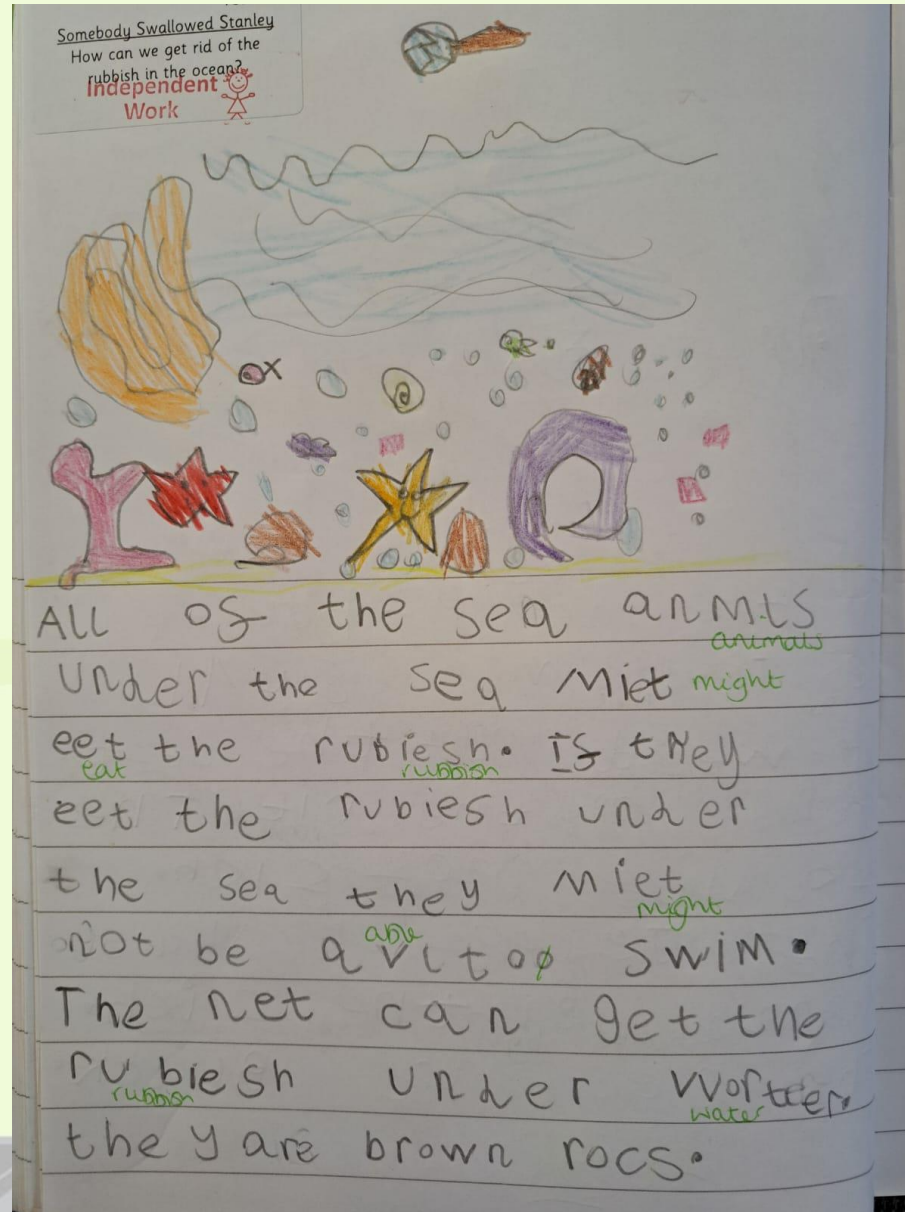 Somebody Swallowed Stanley
How can we get rid of the
rubbish in the ocean?
Independent
Work
ALL of the sea anmls
animals
under the sea Miet might
eet the rubiesh. If they
eat rubbish
eet the rubiesh under
the sea they miet
might
not be avltoo swim.
able
The net can get the
rubiesh under worter.
rubbish water
they are brown rocs.